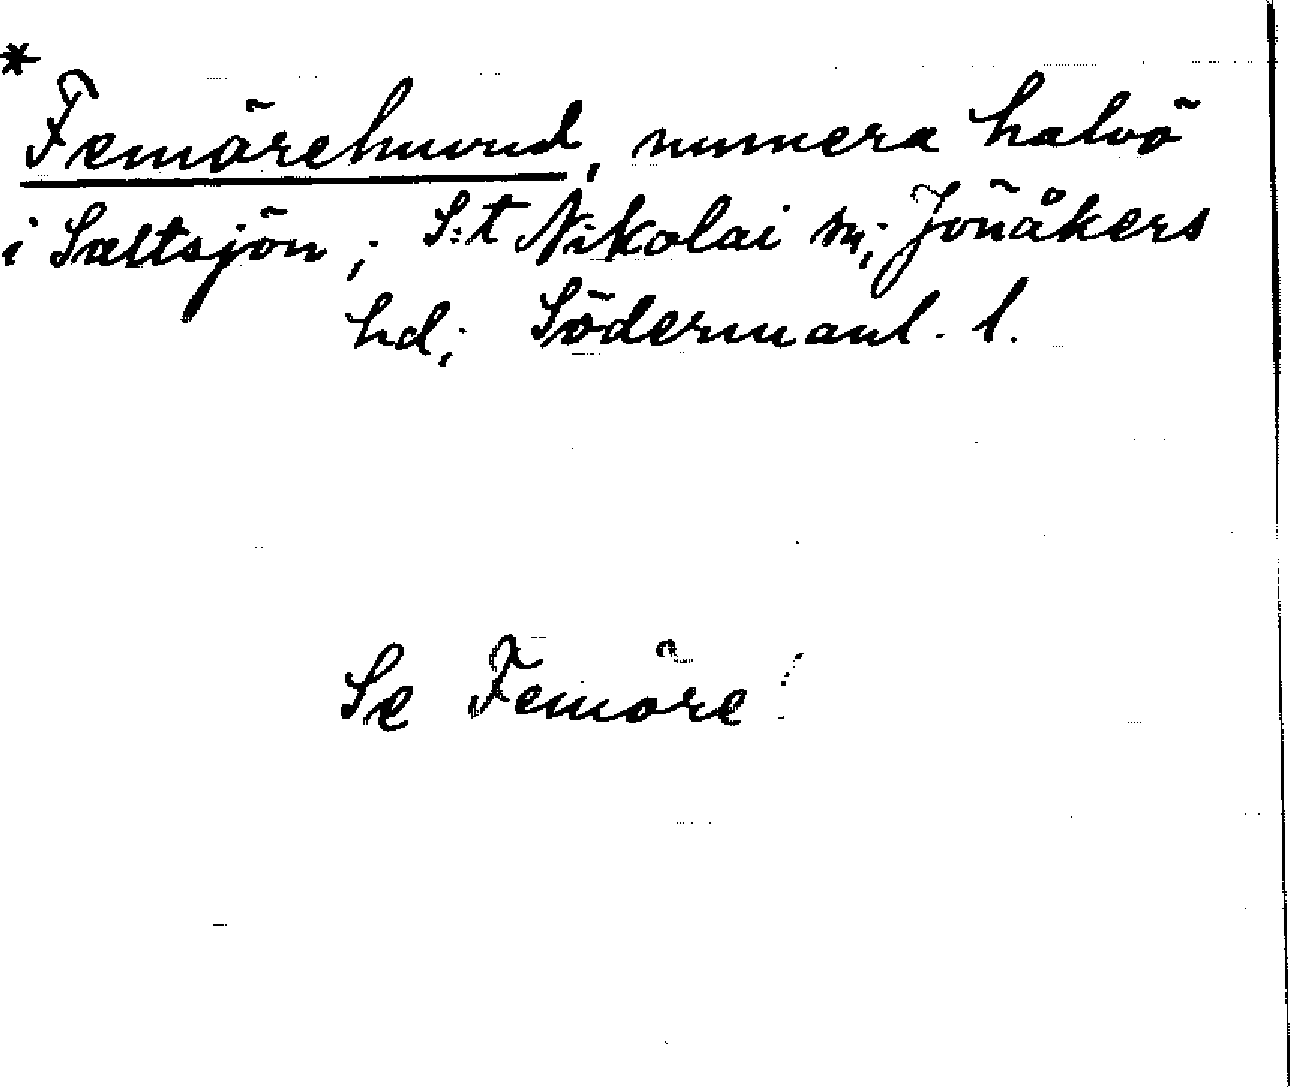 *
Femörehuvud, numera halvö
i Saltsjön; S:t Nikolai sn; Jönåkers
hd; Södermanl. l.
Se Femöre!